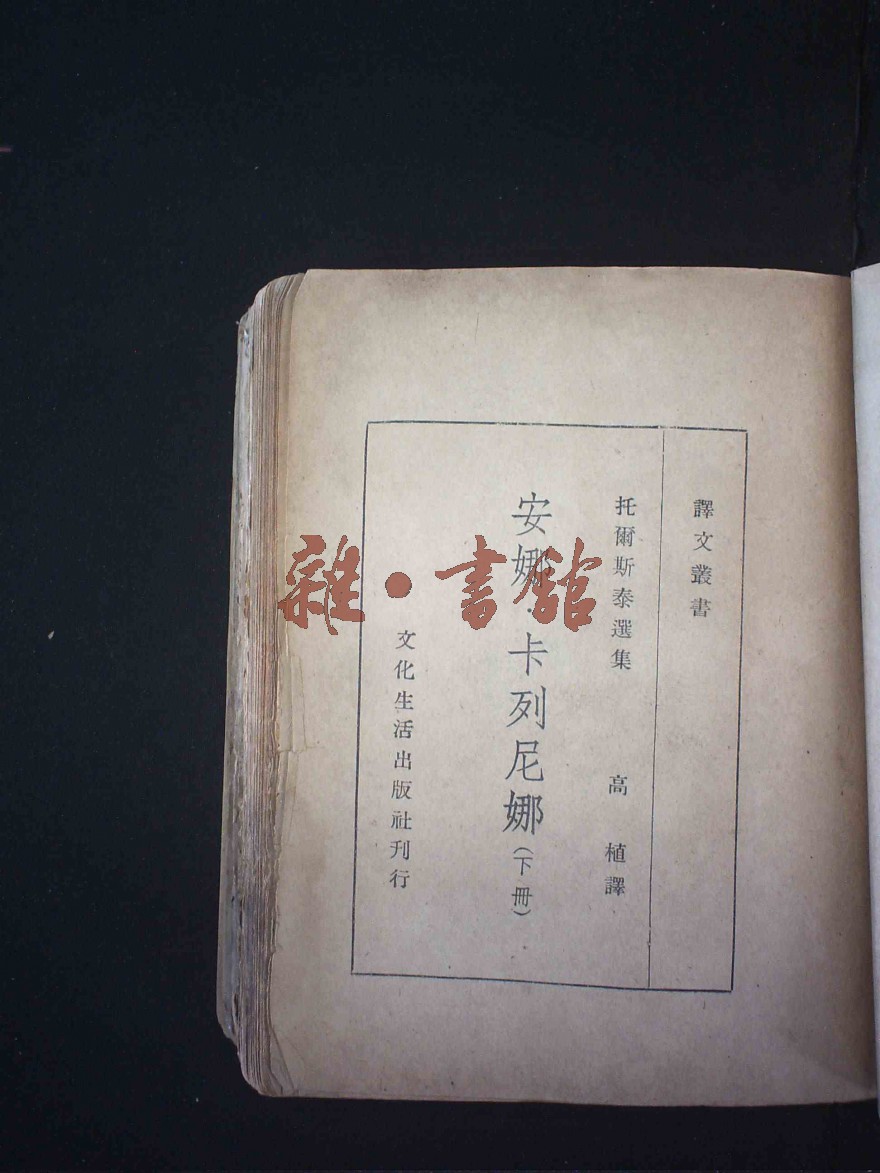 譯文叢書
托爾斯泰選集　高　植譯
安娜·卡列尼娜（下冊）
文化生活出版社刊行
雜·書館